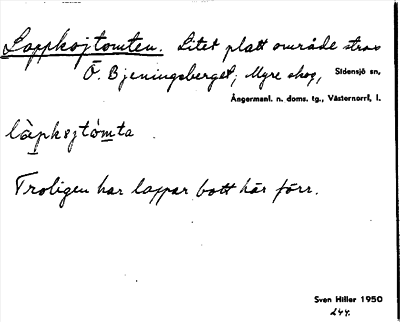 Lappkojtomten. Litet platt område strax
Ö. Bjeningsberget, Myre skog, Sidensjö sn,
Ångermanl. n. doms. tg., Västernorrl, l.
làpkojtòmta
Troligen har lappar bott här förr.
Sven Hiller 1950
244.